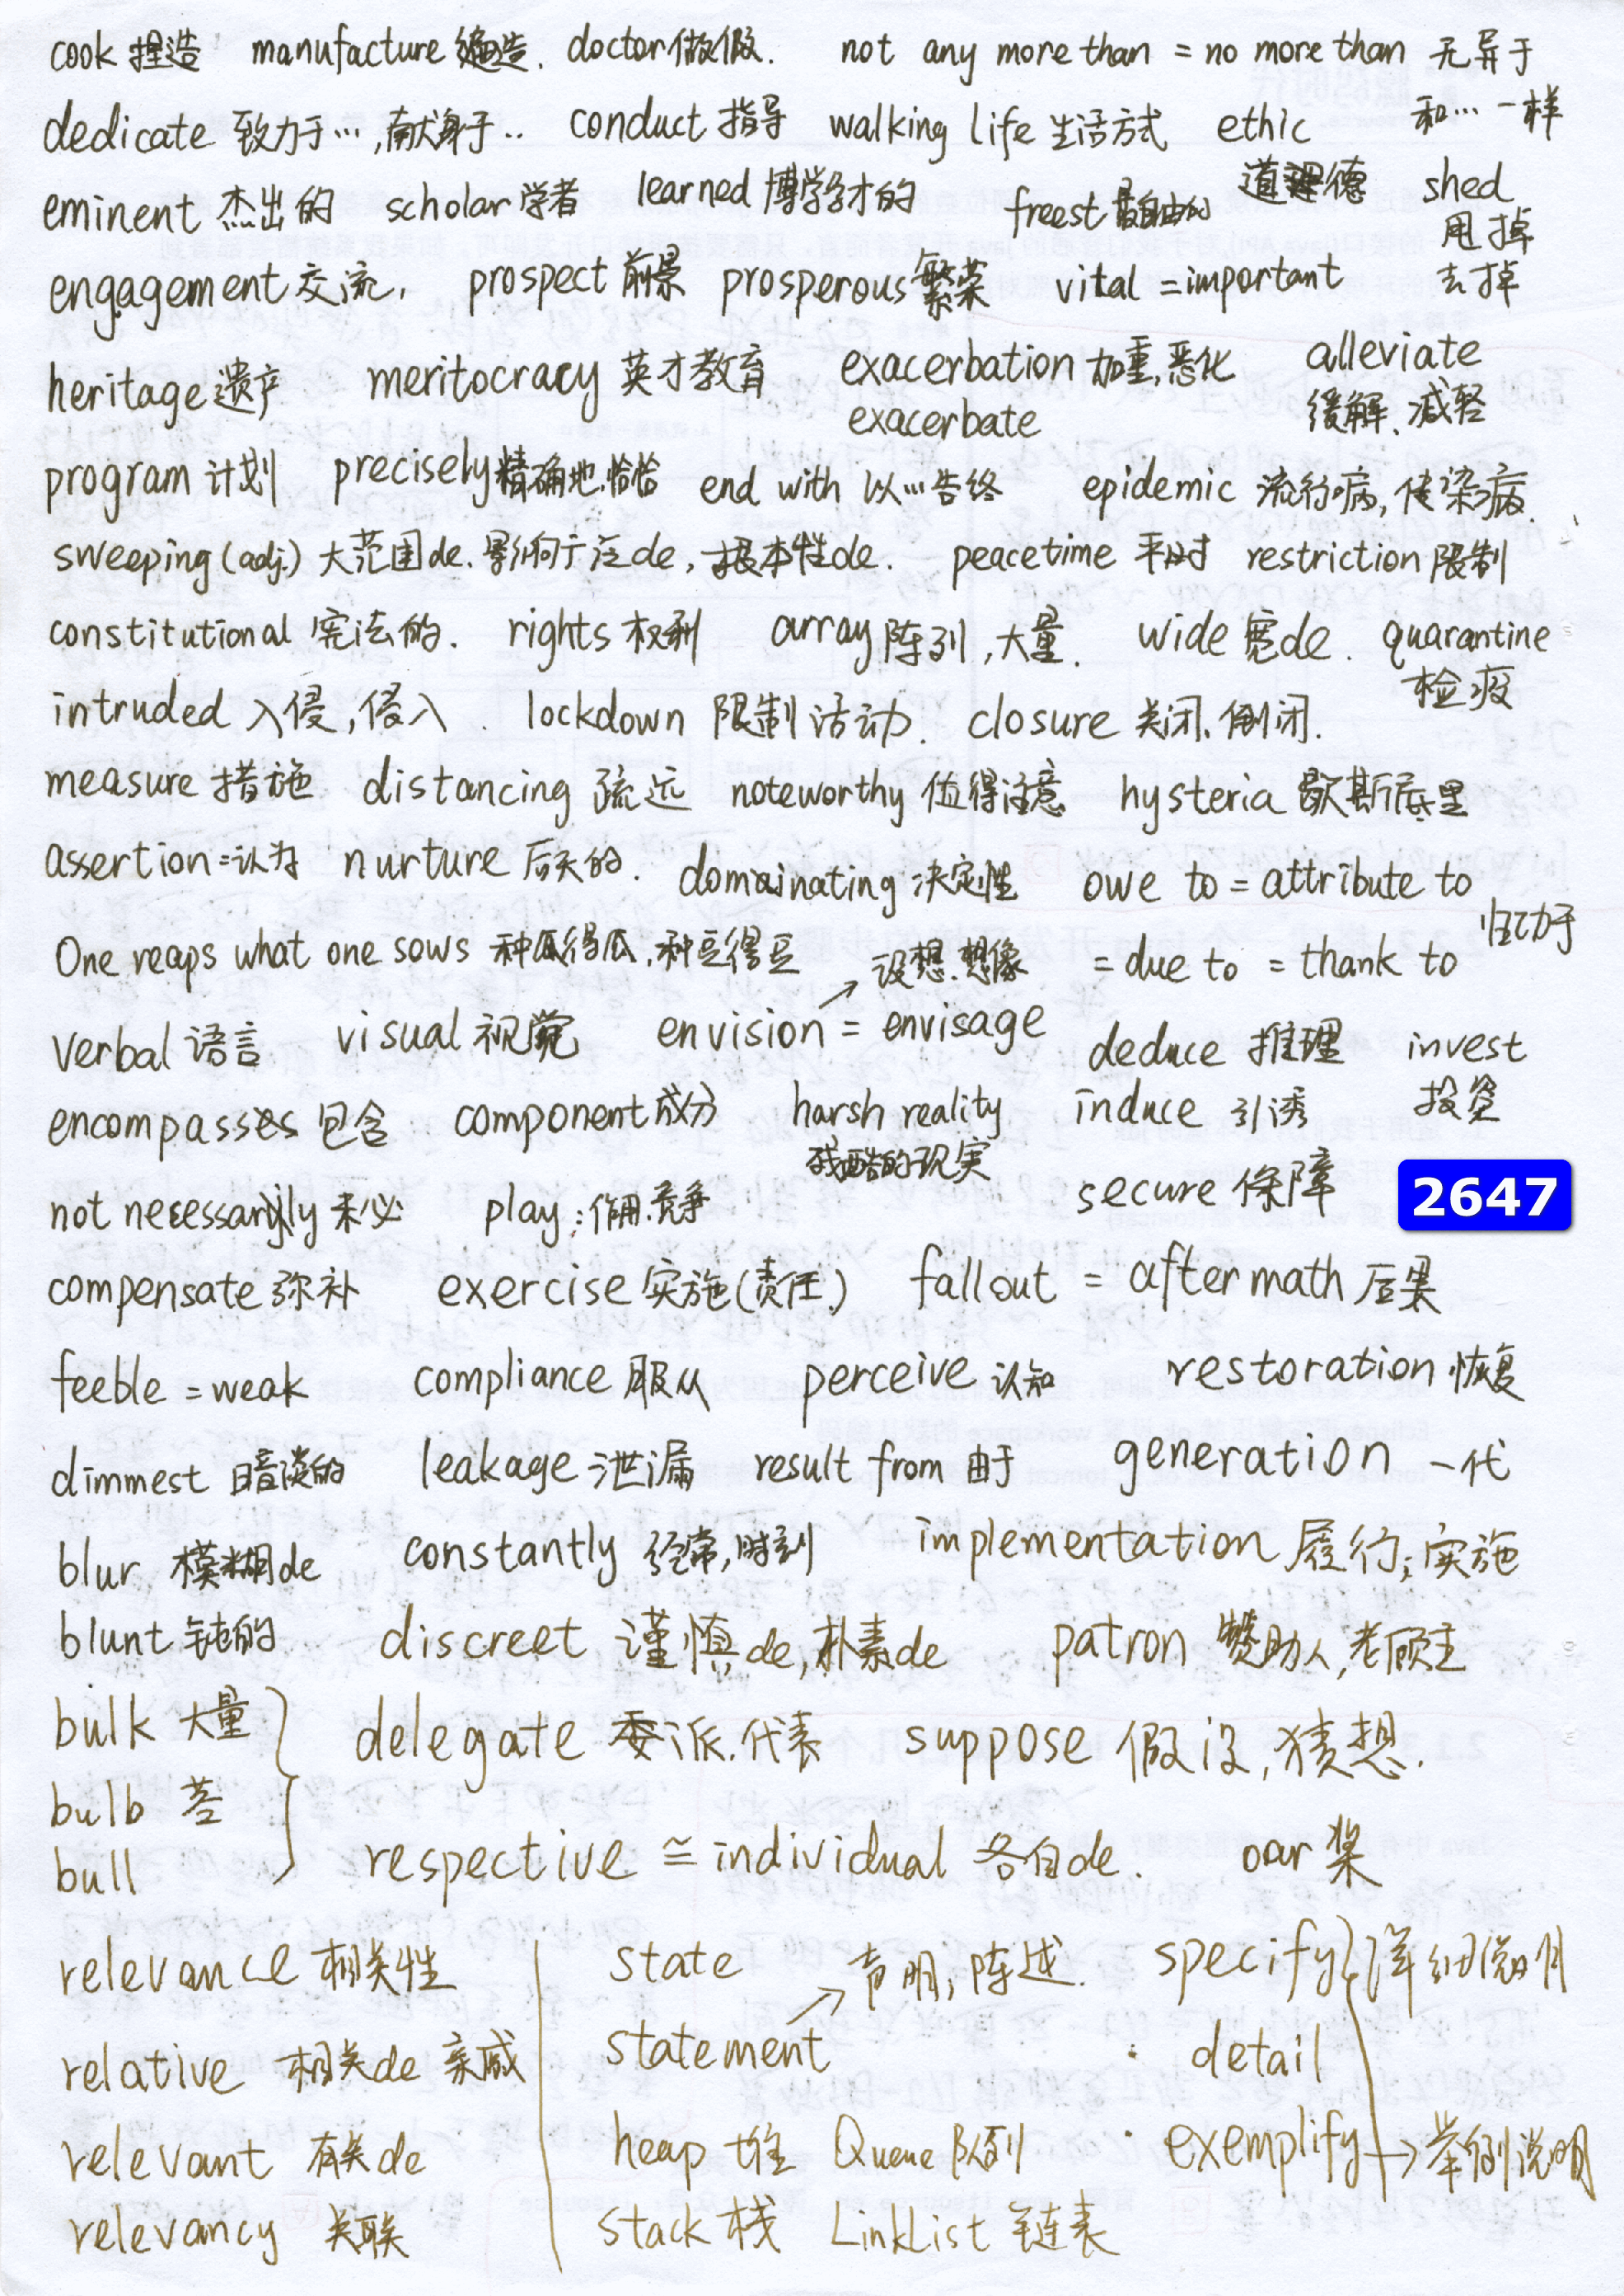 cook 捏造 manufacture 编造. doctor 做假. not any more than = no more than 无异于
dedicate 致力于…,献身于.. conduct 指导 walking life 生活方式 ethic 和…一样
eminent 杰出的 scholar 学者 learned 博学多才的 freest 最自由的 道德 shed
甩掉
engagement 交流, prospect 前景 prosperous 繁荣 vital = important 去掉
heritage 遗产 meritocracy 英才教育 exacerbation 加重,恶化 alleviate
exacerbate 缓解、减轻
program 计划 precisely 精确地.恰恰 end with 以…告终 epidemic 流行病,传染病.
sweeping (adj.) 大范围de.影响广泛de,根本性de. peacetime 平时 restriction 限制
constitutional 宪法的. rights 权利 array 阵列,大量. wide 宽de. quarantine
检疫
intruded 入侵,侵入. lockdown 限制活动. closure 关闭、倒闭.
measure 措施 distancing 疏远 noteworthy 值得注意 hysteria 歇斯底里
assertion=认为 nurture 后天的. domainating 决定性 owe to = attribute to
归功于
One reaps what one sows 种瓜得瓜,种豆得豆 → 设想.想像 = due to = thank to
verbal 语言 visual 视觉 envision = envisage deduce 推理 invest
encompasses 包含 component 成分 harsh reality induce 引诱 投资
残酷的现实
not necessarily 未必 play:作用.竞争 secure 保障 2647
compensate 弥补 exercise 实施(责任.) fallout = aftermath 后果
feeble = weak compliance 服从 perceive 认知 restoration 恢复
dimmest 暗淡的 leakage 泄漏 result from 由于 generation 一代
blur 模糊de constantly 经常,时刻 implementation 履行;实施
blunt 钝的 discreet 谨慎de,朴素de patron 赞助人,老顾主
bulk 大量 delegate 委派.代表 suppose 假设,猜想.
bulb 茎
bull respective ≅ individual 各自de. oar 桨
relevance 相关性 state 声明,陈述. specify 详细说明
relative 相关de 亲戚 statement · detail
relevant 有关de heap 堆 Queue 队列 · exemplify → 举例说明
relevancy 关联 stack 栈 LinkList 链表